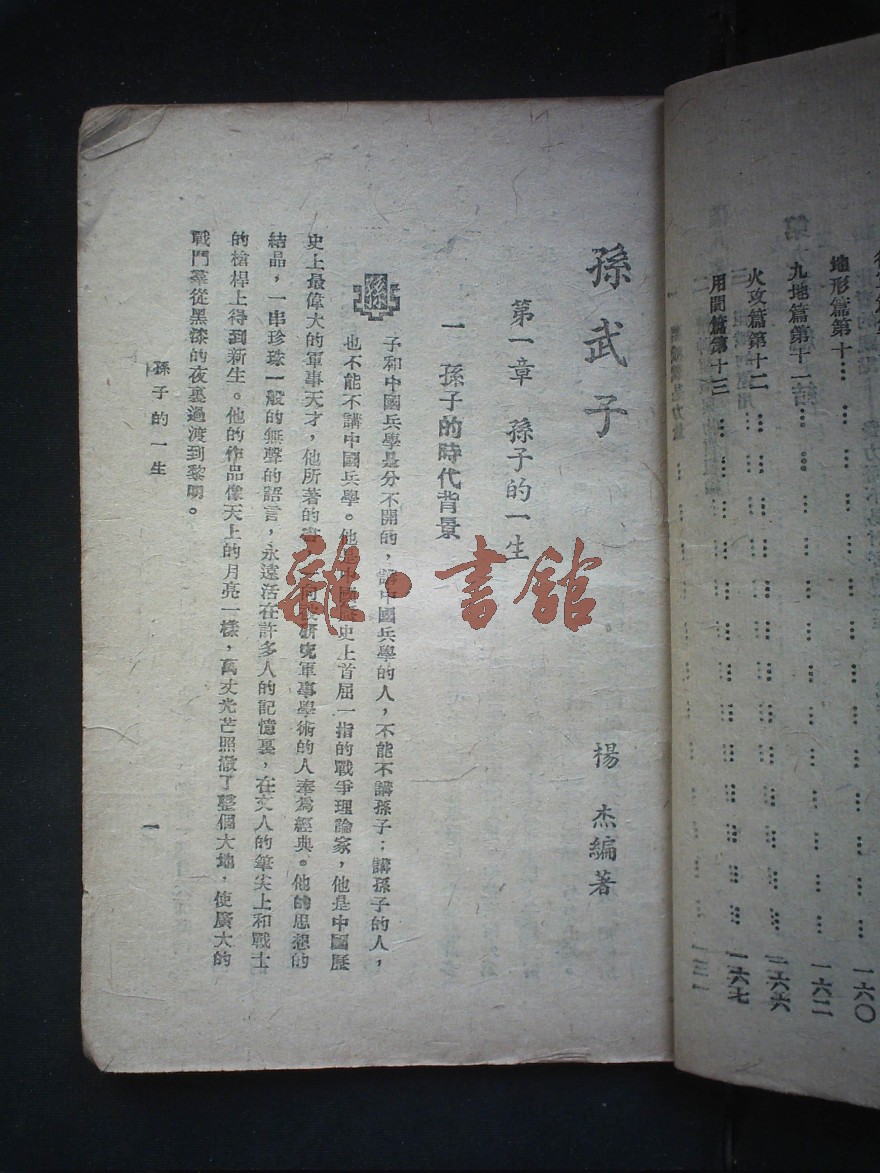 地形篇第十 一六〇
九地篇第十一 一六二
火攻篇第十二 一六六
用間篇第十三 一六七
孫武子
楊杰編著
第一章 孫子的一生
一 孫子的時代背景
孫子和中國兵學是分不開的，講中國兵學的人，不能不講孫子；講孫子的人，
也不能不講中國兵學。他是中國歷史上首屈一指的戰爭理論家，他是中國歷
史上最偉大的軍事天才，他所著的 研究軍事學術的人奉為經典。他的思想的
結晶，一串珍珠一般的無聲的語言，永遠活在許多人的記憶裏，在文人的筆尖上和戰士
的槍桿上得到新生。他的作品像天上的月亮一樣，萬丈光芒照澈了整個大地，使廣大的
戰鬥羣從黑漆的夜裏過渡到黎明。
孫子的一生
一
雜·書館